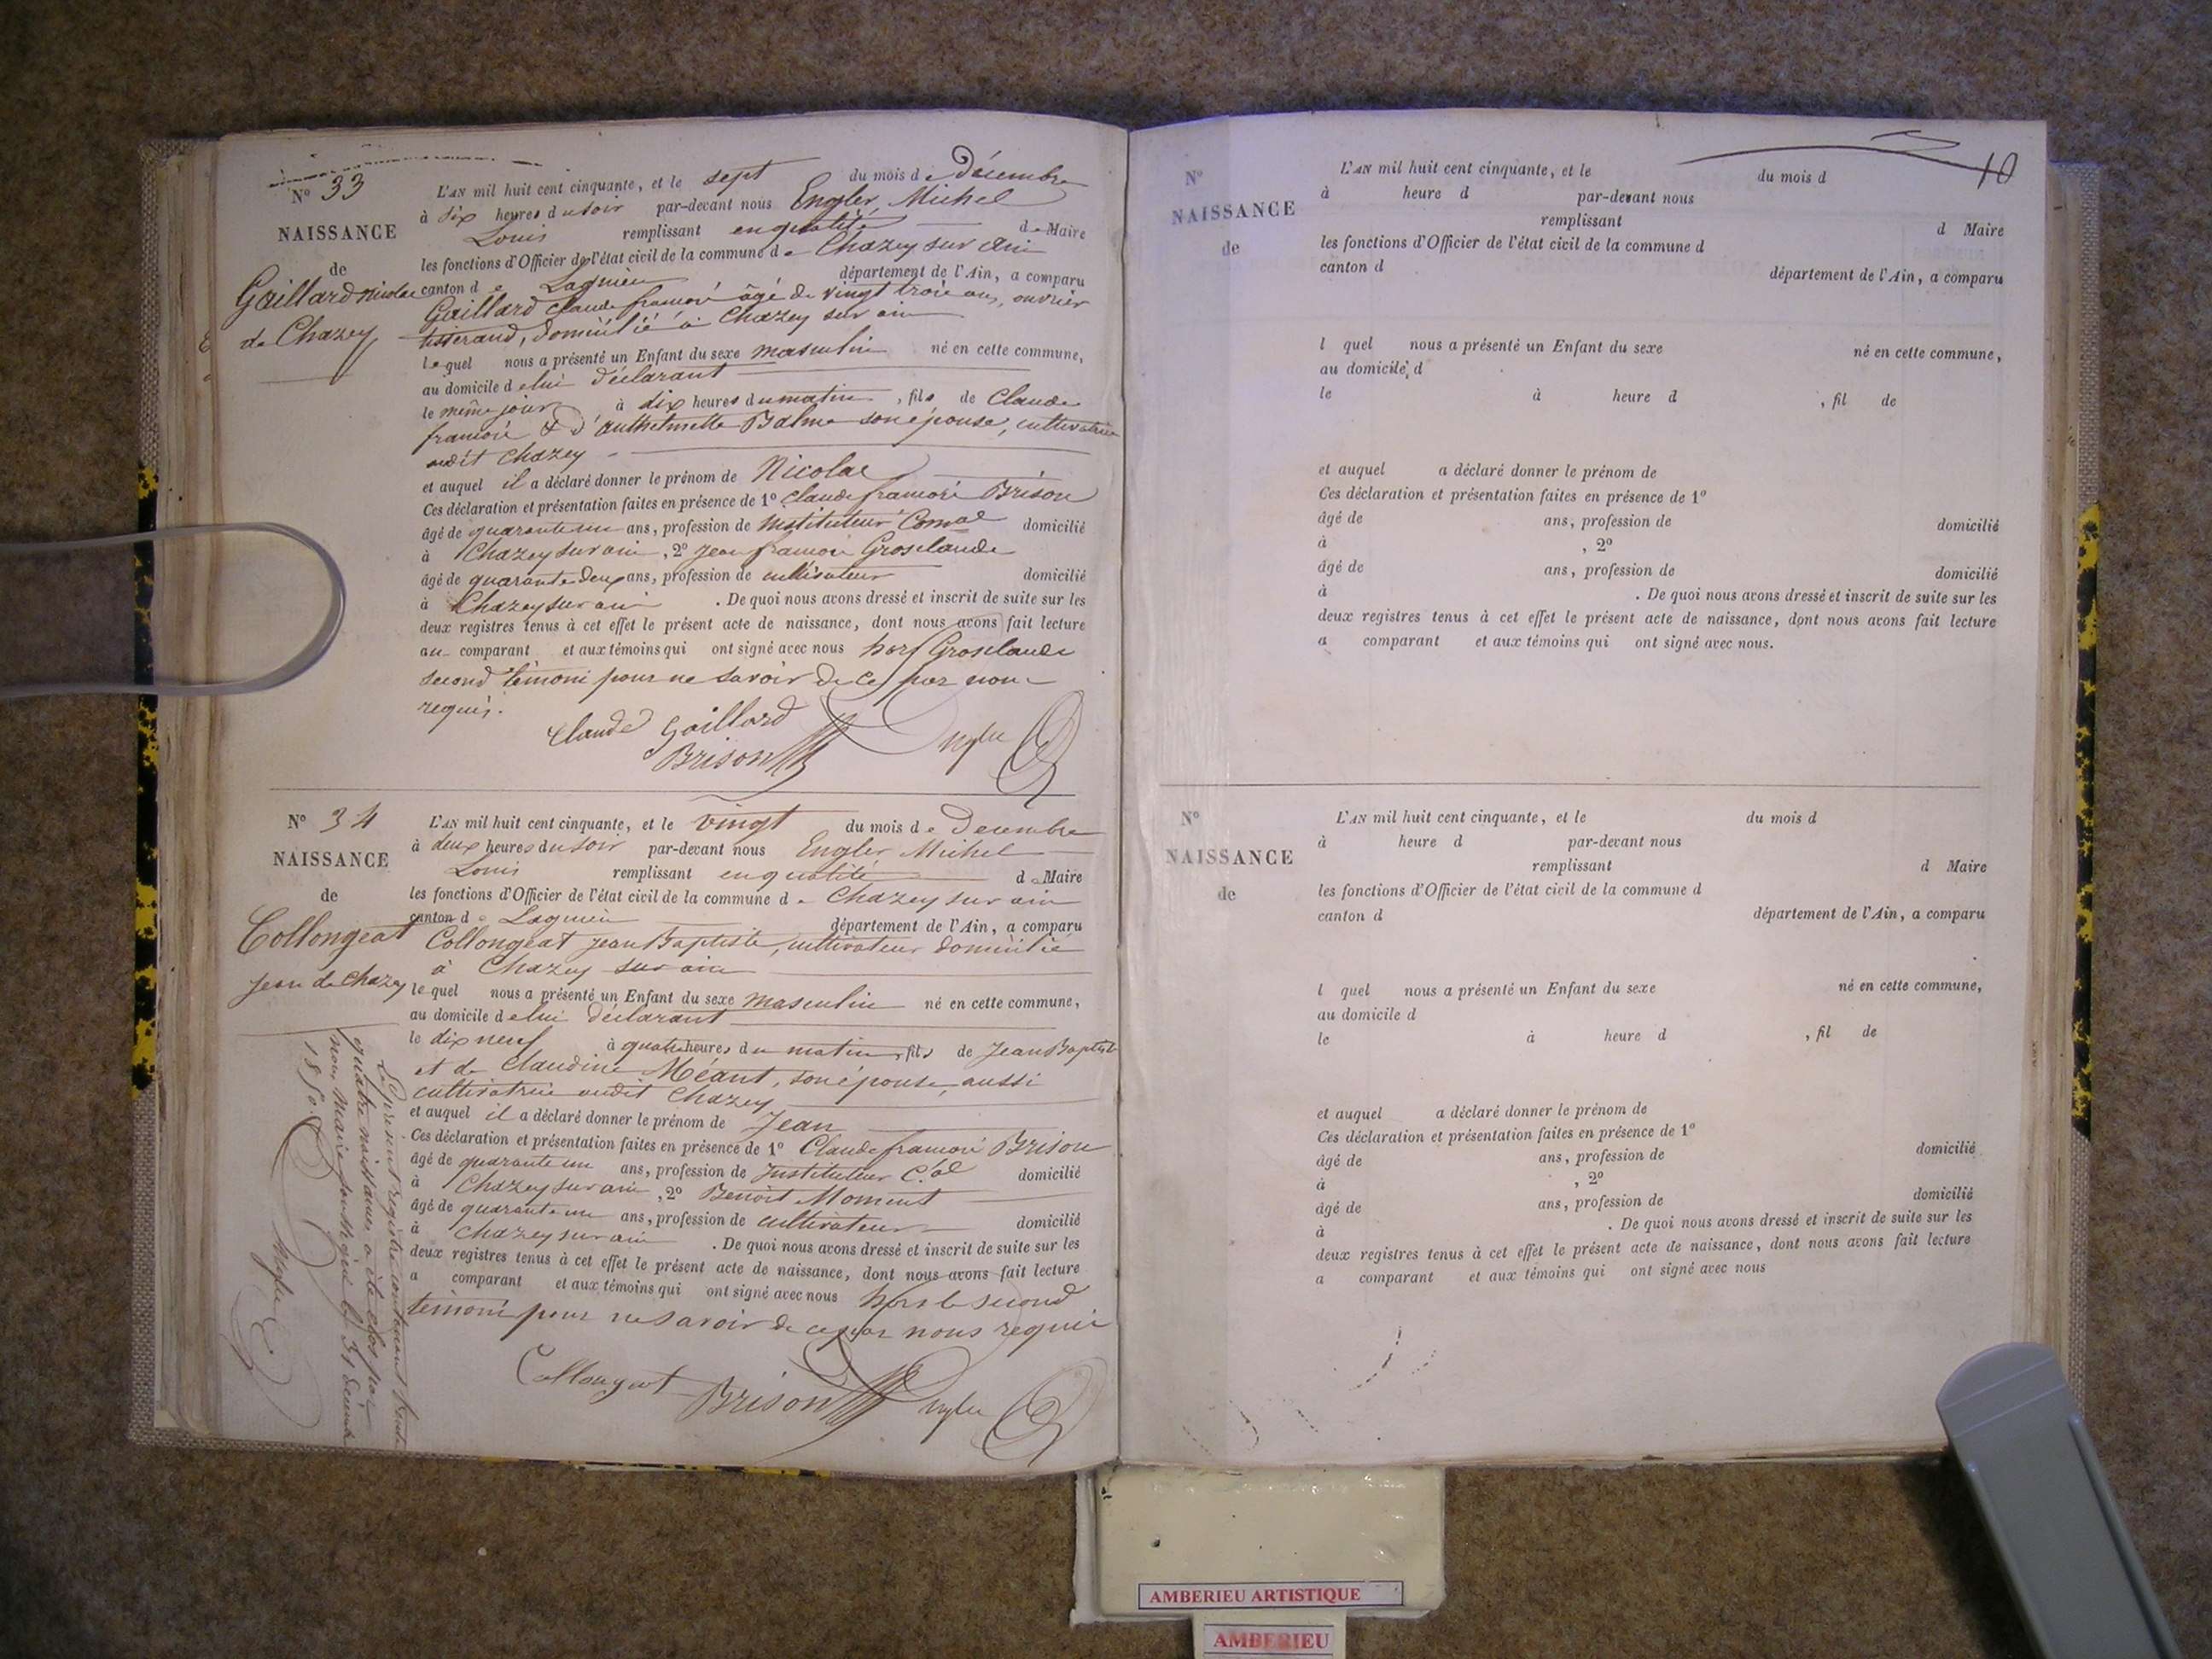 N° 33
NAISSANCE
de
Gaillard Nicolas
de Chazey
L'AN mil huit cent cinquante, et le sept du mois de Décembre
à dix heures du soir par-devant nous Engler, Michel
Louis remplissant en qualité de Maire
les fonctions d'Officier de l'état civil de la commune de Chazey sur ain
canton de Lagnieu département de l'Ain, a comparu
Gaillard Claude françois âgé de vingt trois ans, ouvrier
tisserand, domicilié à Chazey sur ain
lequel nous a présenté un Enfant du sexe masculin né en cette commune,
au domicile de lui déclarant
le même jour à dix heures du matin, fils de Claude
françois & d'Anthelmette Balme son épouse, cultivatrice
audit Chazey
et auquel il a déclaré donner le prénom de Nicolas
Ces déclaration et présentation faites en présence de 1° Claude françois Brison
âgé de quarante un ans, profession de instituteur Comal domicilié
à Chazey sur ain, 2° Jean françois Grosclaude
âgé de quarante deux ans, profession de cultivateur domicilié
à Chazey sur ain. De quoi nous avons dressé et inscrit de suite sur les
deux registres tenus à cet effet le présent acte de naissance, dont nous avons fait lecture
au comparant et aux témoins qui ont signé avec nous hors Grosclaude
second témoin pour ne savoir de ce par nous
requis.
Claude Gaillard
Brison Engler
N° 34
NAISSANCE
de
Collongeat
Jean de Chazey
L'AN mil huit cent cinquante, et le vingt du mois de Decembre
à deux heures du soir par-devant nous Engler Michel
Louis remplissant en qualité de Maire
les fonctions d'Officier de l'état civil de la commune de Chazey sur ain
canton de Lagnieu département de l'Ain, a comparu
Collongeat Jean Baptiste, cultivateur domicilié
à Chazey sur ain
lequel nous a présenté un Enfant du sexe masculin né en cette commune,
au domicile de lui déclarant
le dix neuf à quatre heures du matin, fils de Jean Baptiste
et de Claudine Méant, son épouse, aussi
cultivatrice audit Chazey
et auquel il a déclaré donner le prénom de Jean
Ces déclaration et présentation faites en présence de 1° Claude françois Brison
âgé de quarante un ans, profession de Instituteur C.al domicilié
à Chazey sur ain, 2° Benoit Moment
âgé de quarante un ans, profession de cultivateur domicilié
à Chazey sur ain. De quoi nous avons dressé et inscrit de suite sur les
deux registres tenus à cet effet le présent acte de naissance, dont nous avons fait lecture
a comparant et aux témoins qui ont signé avec nous hors le second
témoin pour ne savoir de ce par nous requis
Collongeat Brison Engler
Le présent registre contenant trente
quatre naissances a été clos par
nous, Maire soussigné le 31 décembre
1850.
Engler
10
N°
NAISSANCE
de
L'AN mil huit cent cinquante, et le du mois d
à heure d par-devant nous
remplissant d Maire
les fonctions d'Officier de l'état civil de la commune d
canton d département de l'Ain, a comparu
l quel nous a présenté un Enfant du sexe né en cette commune,
au domicile d
le à heure d , fil de
et auquel a déclaré donner le prénom de
Ces déclaration et présentation faites en présence de 1°
âgé de ans, profession de domicilié
à , 2°
âgé de ans, profession de domicilié
à . De quoi nous avons dressé et inscrit de suite sur les
deux registres tenus à cet effet le présent acte de naissance, dont nous avons fait lecture
a comparant et aux témoins qui ont signé avec nous.
N°
NAISSANCE
de
L'AN mil huit cent cinquante, et le du mois d
à heure d par-devant nous
remplissant d Maire
les fonctions d'Officier de l'état civil de la commune d
canton d département de l'Ain, a comparu
l quel nous a présenté un Enfant du sexe né en cette commune,
au domicile d
le à heure d , fil de
et auquel a déclaré donner le prénom de
Ces déclaration et présentation faites en présence de 1°
âgé de ans, profession de domicilié
à , 2°
âgé de ans, profession de domicilié
à . De quoi nous avons dressé et inscrit de suite sur les
deux registres tenus à cet effet le présent acte de naissance, dont nous avons fait lecture
a comparant et aux témoins qui ont signé avec nous
AMBERIEU ARTISTIQUE
AMBERIEU